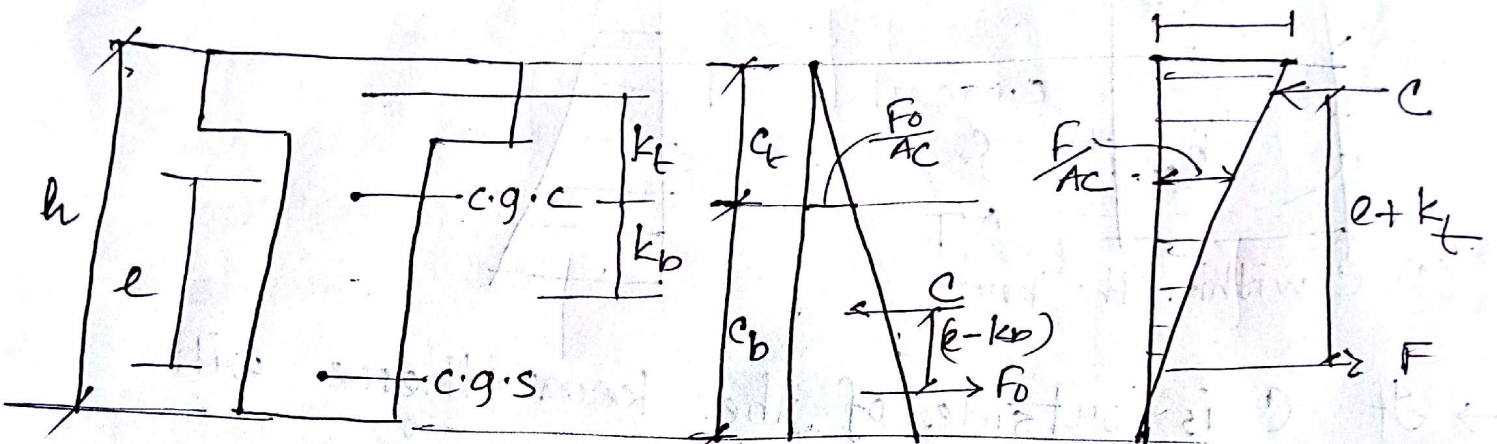 h
e
c.g.c
c.g.s
k_t
k_b
C_t
C_b
F_0/AC
C
(e-k_b)
F_0
F/AC
C
e+k_t
F